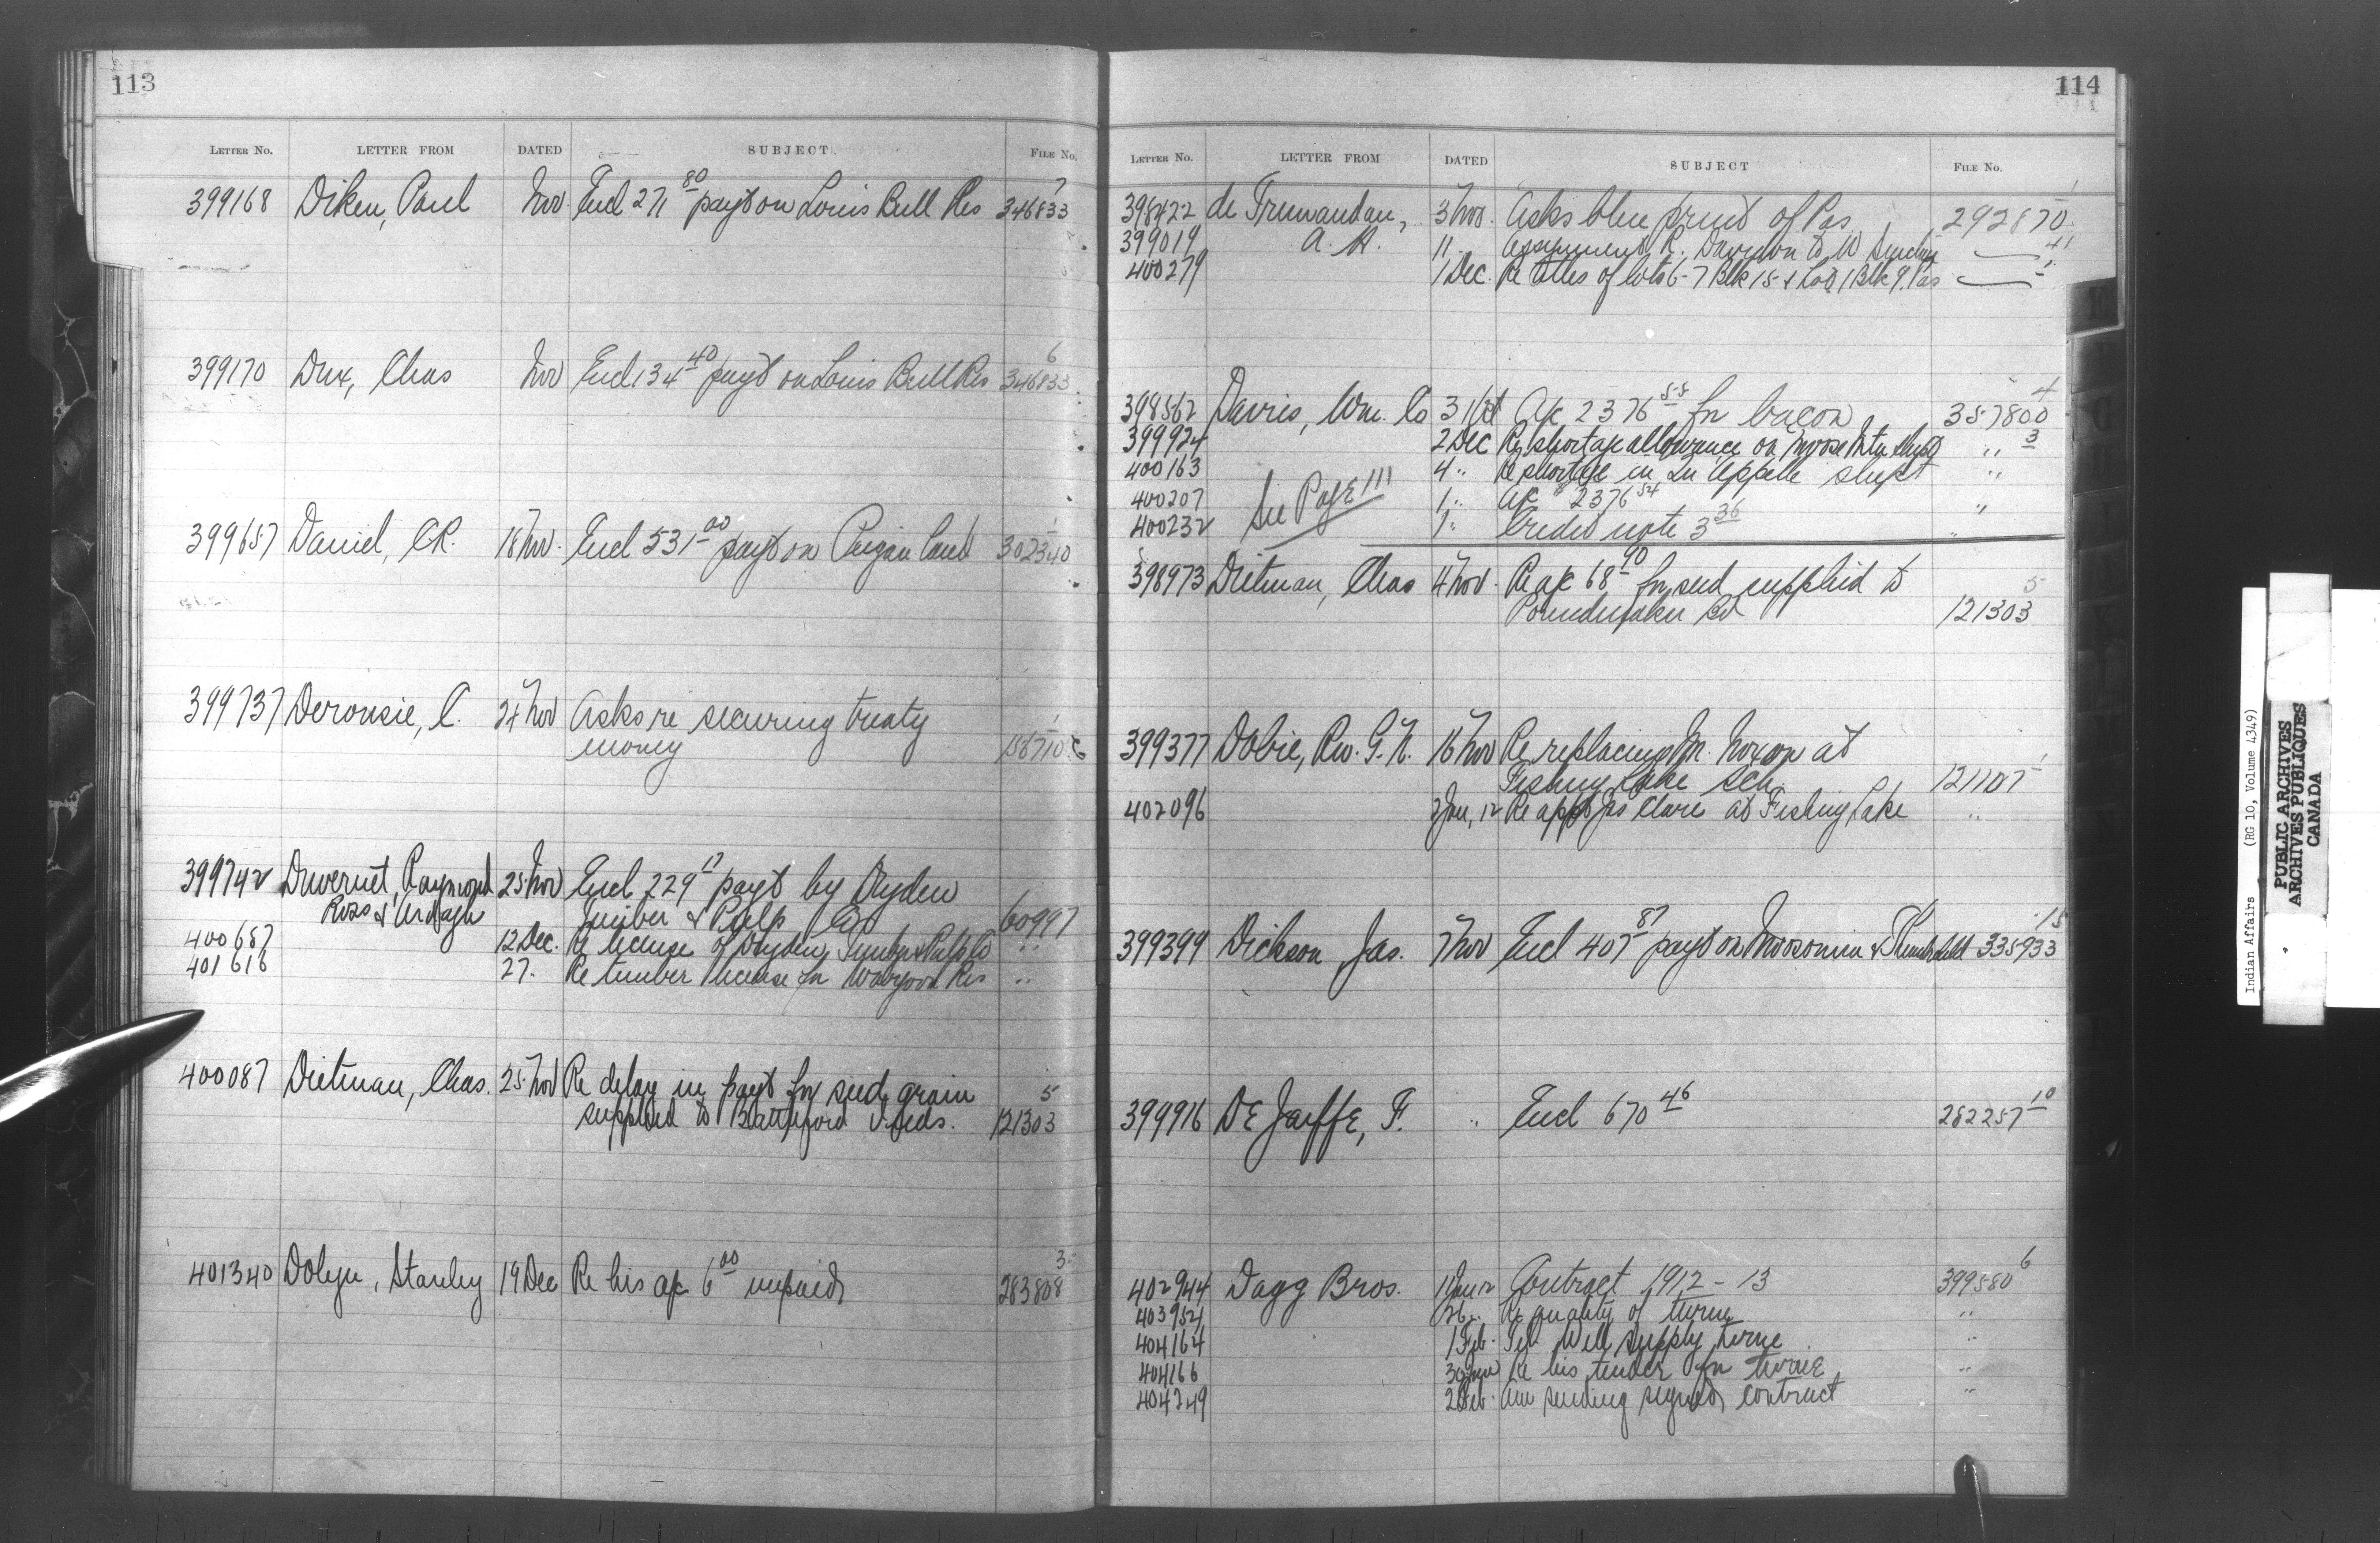 113
LETTER No. LETTER FROM DATED SUBJECT FILE No.
399168 Diken, Paul Nov Encl 271 80 payt on Louis Bull Res 346833 7
399170 Dux, Chas Nov Encl 134 40 payt on Louis Bull Res 346833 6
399657 Daniel, C.R. 18 Nov. Encl 531 00 payt on Peigan land 302340 1
399737 Deronsie, C. 24 Nov Asks re securing treaty
money
399742 Duvernet, Raymond 25 Nov Encl 229 17 payt by Dryden
Ross & Ardagh Timber & Pulp Co 60997
400687 12 Dec. Re license of Dryden Timber & Pulp Co "
401616 27. Re timber license for Wabigoon Res "
400087 Dietman, Chas. 25 Nov Re delay in payt for seed grain 5
supplied to Battleford Inds. 121303
401340 Dolyn, Stanley 19 Dec Re his a/c 6 00 unpaid 283808 3
114
LETTER No. LETTER FROM DATED SUBJECT FILE No.
398422 de Tremaudan, 3 Nov. Asks blue print of Pas 292870 1
399019 A. H. 11. Assignment R. Davidson to W
400279 1 Dec. Re titles of lots 6-7 Blk 15 & Lot 1 Blk 9. Pas
398562 Davies, Wm. Co 31 Oct A/c 2376 55 for bacon 357800 4
399924 2 Dec Re shortage allowance on Moose Mtn shipt " 3
400163 4 " Re shortage in Qu'Appelle shipt "
400207 See Page 111 1 " A/c 2376 54 "
400232 1 " Credit note 3 36 "
398973 Dietman, Chas 4 Nov. Re a/c 68 90 for seed supplied to 5
Poundmaker Bd 121303
399377 Dobie, Rev. G. N. 16 Nov Re replacing M. Moxon at
Fishing Lake Sch. 121107 1
402096 2 Jan, 12 Re appt Jas Clare at Fishing Lake "
399399 Dickson, Jas. 7 Nov Encl 407 87 payt on Moosomin & Thunderchild 335933 15
399916 DE Jaiffe, F. " Encl 670 46 282257 10
402944 Dagg Bros. 11 Jan 12 Contract 1912-13 399580 6
403954 26 " Re quality of twine "
404164 1 Feb. Tel. Will supply twine "
404166 30 Jan Re his tender for twine "
404249 2 Feb. Am sending signed contract "
Indian Affairs (RG 10, Volume 4349)
PUBLIC ARCHIVES
ARCHIVES PUBLIQUES
CANADA